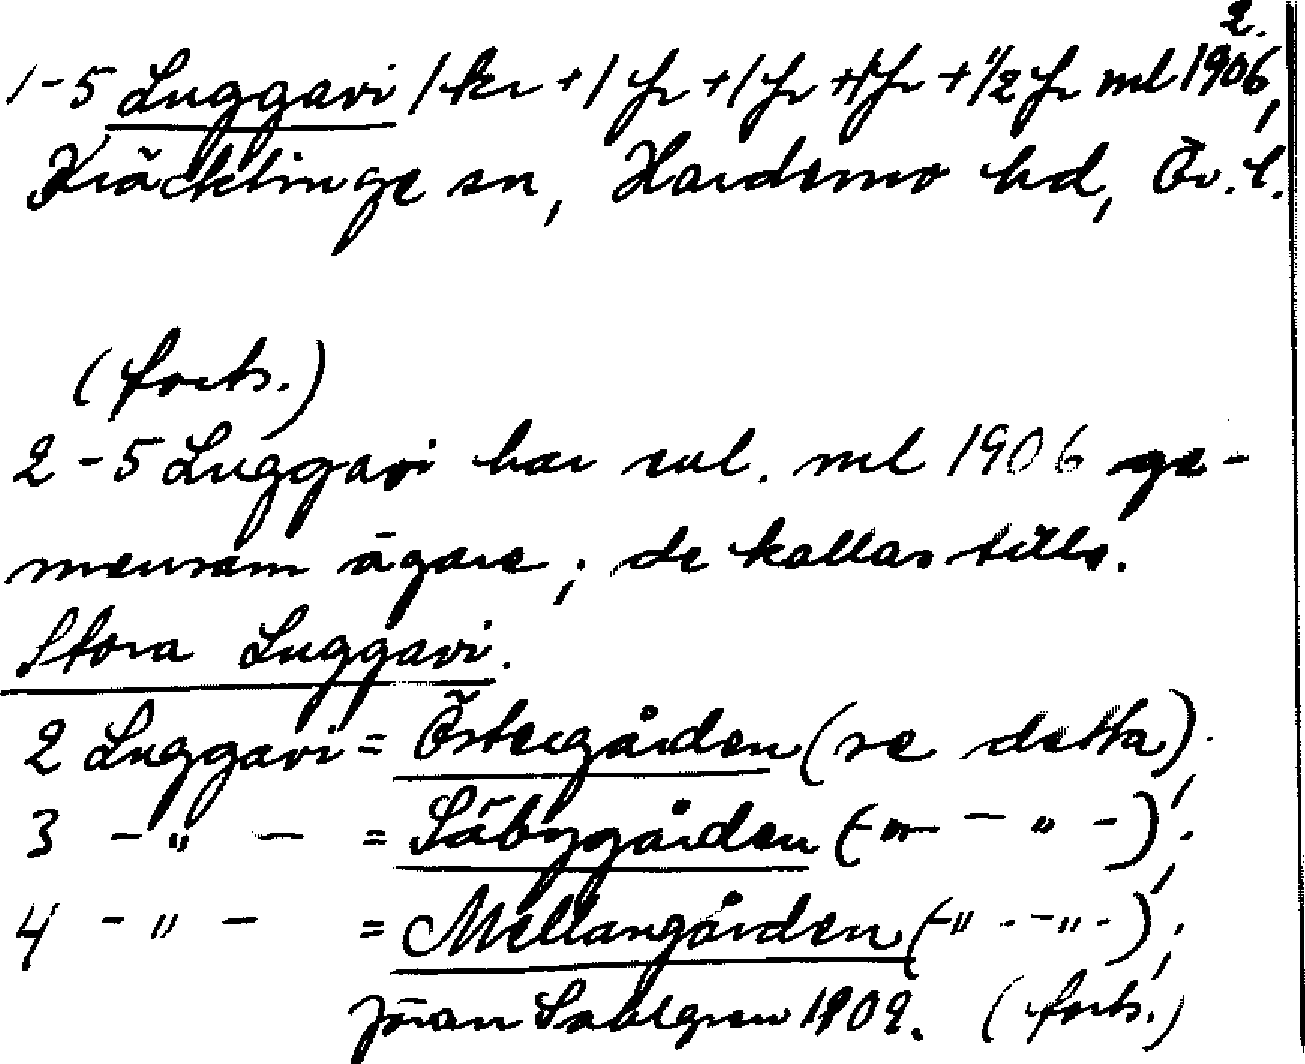 2.
1-5 Luggavi 1 kr + 1 fr + 1 fr + 1 fr + 1/2 fr ml 1906,
Kräcklinge sn, Hardemo hd, Ör. l.
(forts.)
2-5 Luggavi har enl. ml 1906 ge-
mensam ägare; de kallas tills.
Stora Luggavi.
2 Luggavi = Östergården (se detta);
3 - " - = Säbygården (- " - - " -);
4 - " - = Mellangården (- " - - " -);
Jöran Sahlgren 1909. (forts.)